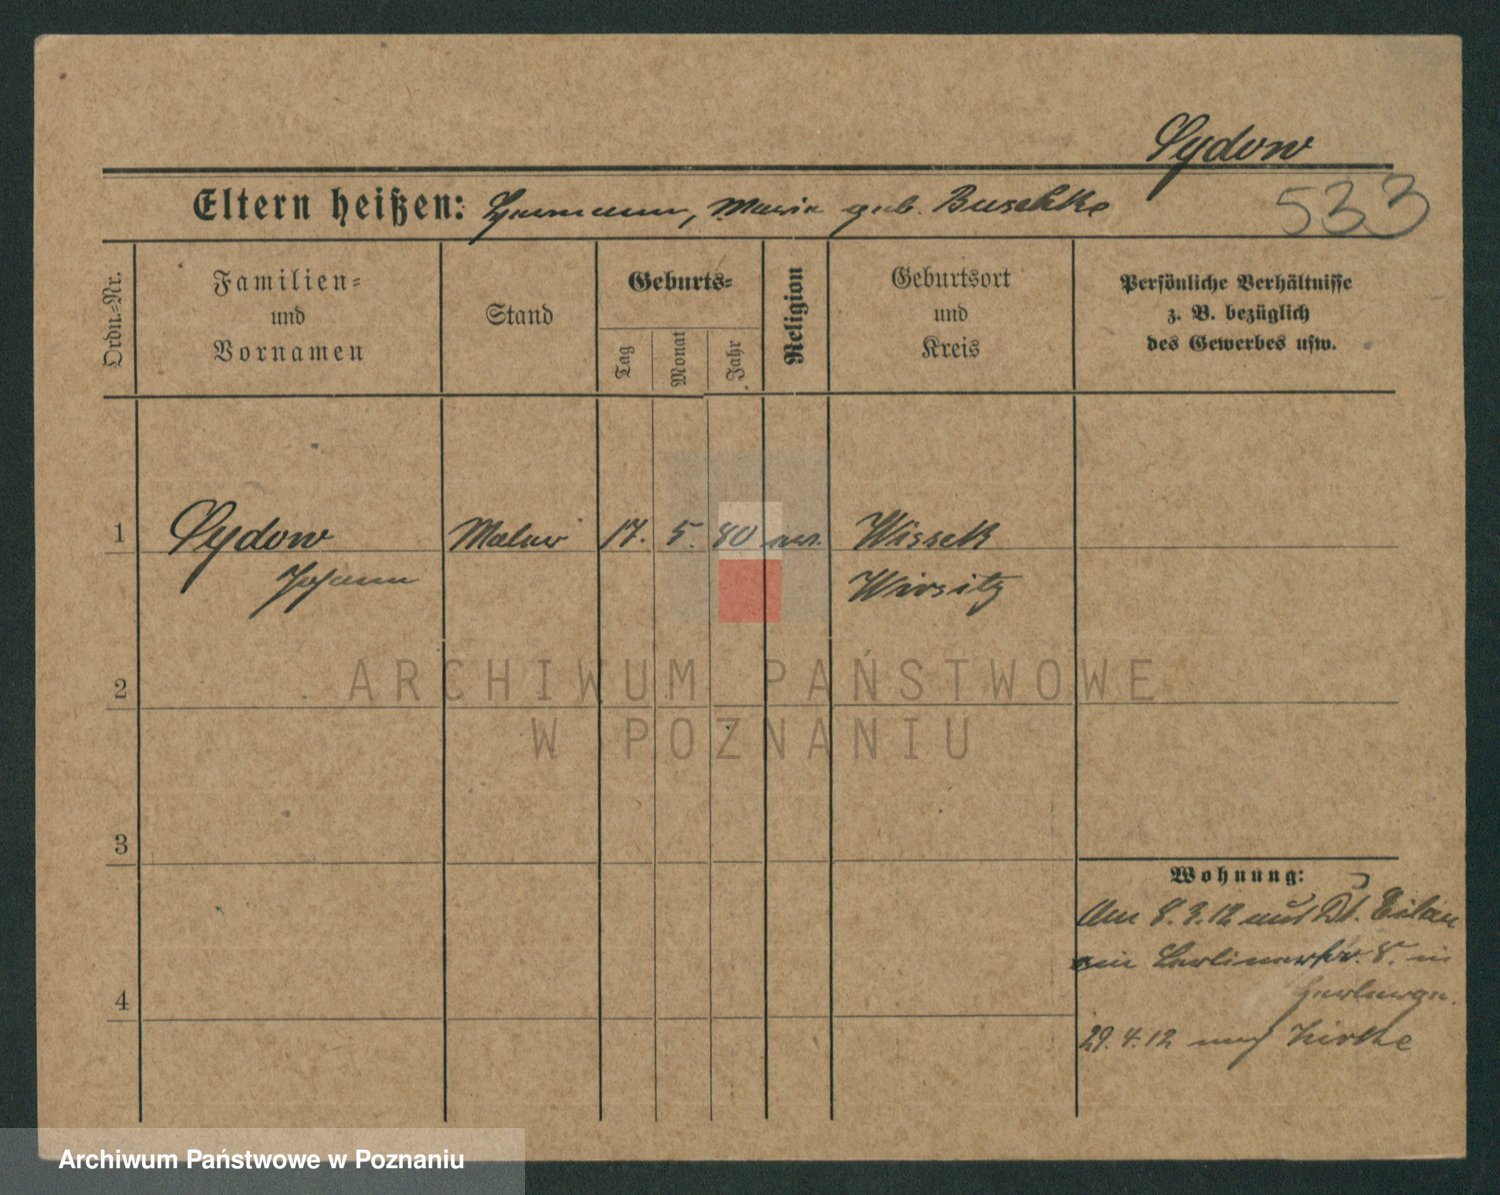 Sydow
Eltern heißen: Hermann, Marie geb. Buschke
533
Ordn.-Nr.
Familien-
und
Vornamen
Stand
Geburts-
Tag
Monat
Jahr
Religion
Geburtsort
und
Kreis
Persönliche Verhältnisse
z. B. bezüglich
des Gewerbes usw.
1 Sydow Maler 17. 5. 80 ev. Wissek
Johann Wirsitz
ARCHIWUM PAŃSTWOWE
W POZNANIU
2
3
Wohnung:
Am 8.3.12 aus Dt. Eilau
Berlinerstr. 8. in
4
29.4.12 nach Zirke
Archiwum Państwowe w Poznaniu